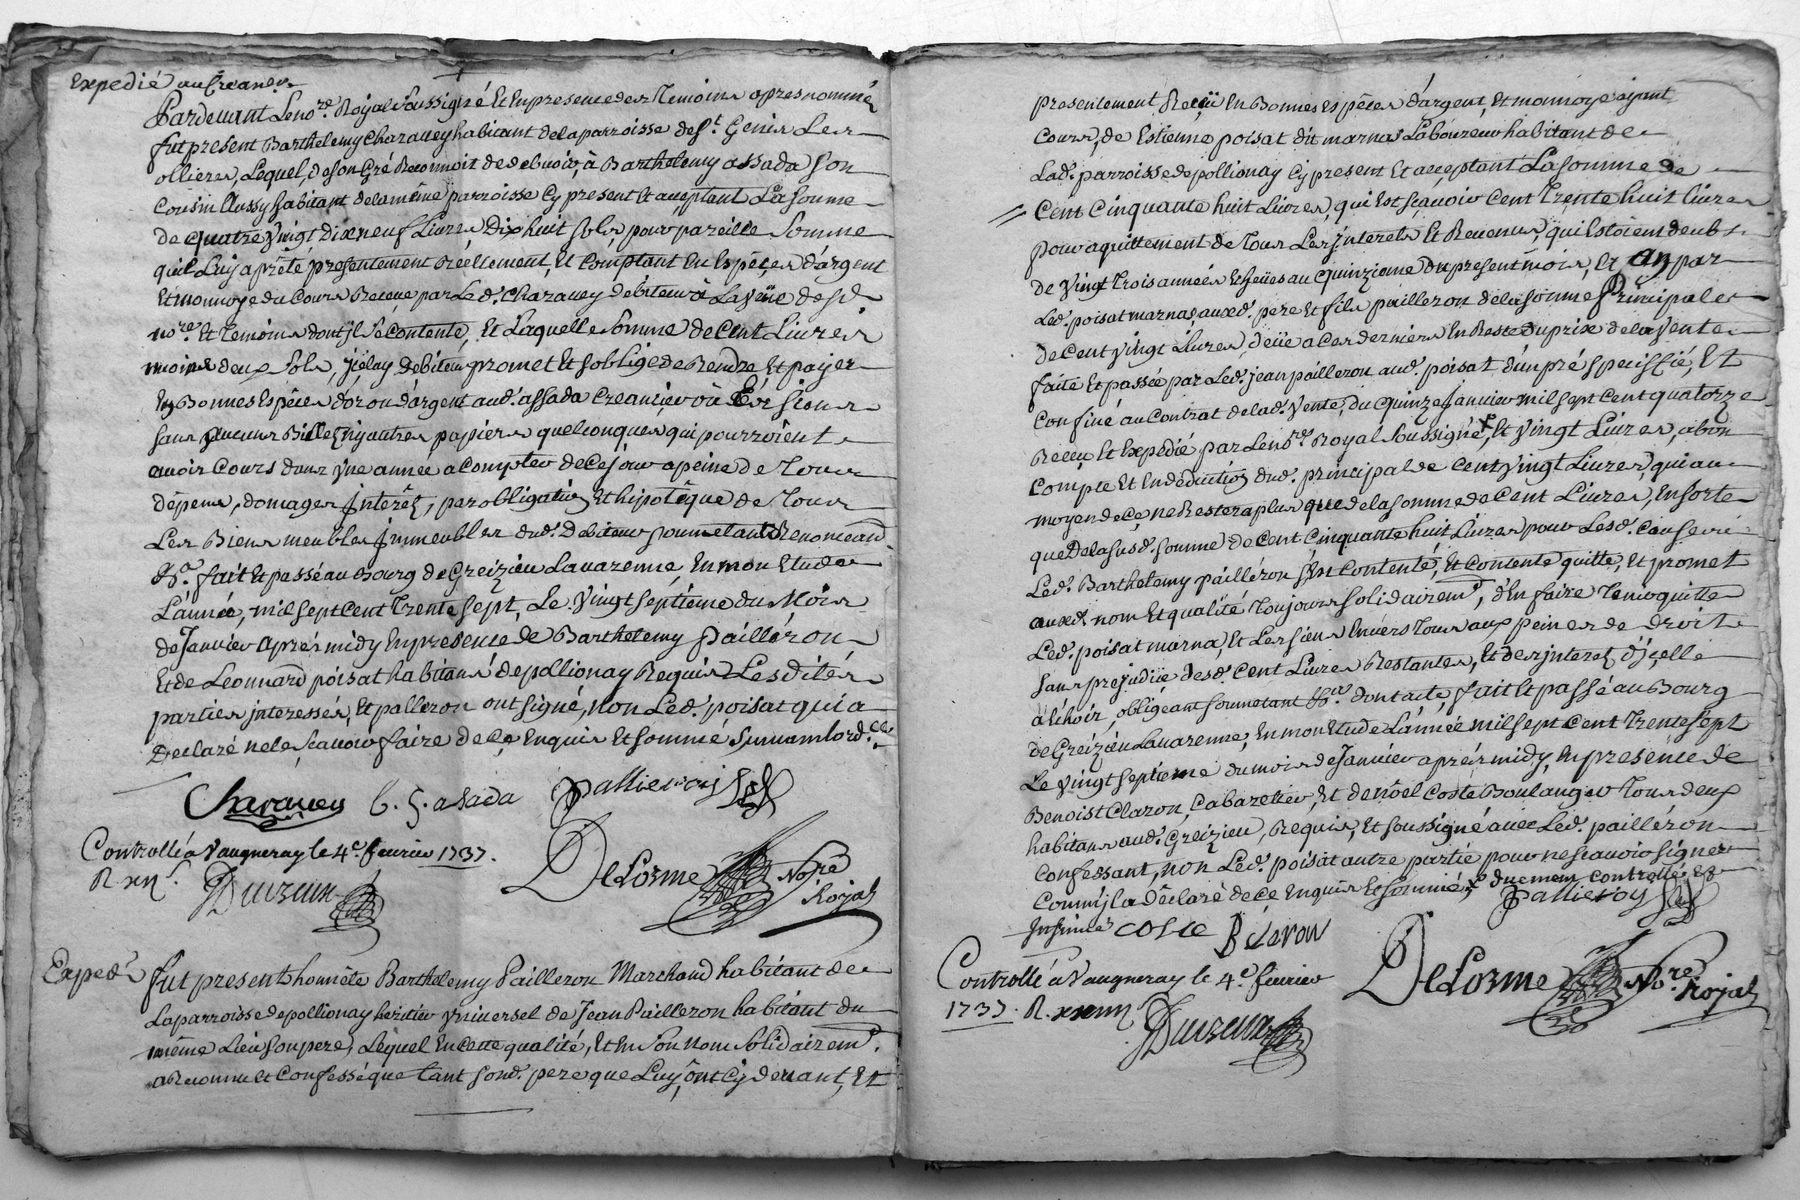 Expedié au Creancier
Pardevant Le no.re Royal Soussigné Et En presence des Temoins apres nommés
fut present Barthelemy Charavey habitant de la parroisse de St. Genis Les
ollieres, Lequel, de son Gré Reconnoit de debvoir, à Barthelemy assada son
Cousin Aussy habitant de la même parroisse Cy present Et acceptant La Somme
de quatre Vingt dix neuf Livres Dix huit sols pour pareille Somme
qu'il Luy a prêté presentement Réellement, Et Comptant En Espêces d'argent
Et monnoye du Cours Receue par Led. Charavey debiteur à La Veüe desd.
no.re Et Temoins dont jl Se Contente, Et Laquelle Somme de Cent Livres
moins deux Sols, jcelay Debiteur promet Et s'oblige de Rendre Et payer
En Bonnes Espêces d'or ou d'argent aud. assada Creancier où
sans aucuns Billets ny autres papiers quelconques qui pourroient
avoir Cours dans Une année a Compter de Ce jour a peine de Tous
dépens, domages jnterêts, par obligation Et hipotêque de Tous
Les Biens meubles jmmeubles dud. Debiteur soumetant Renonceant
&.a fait Et passé au Bourg de Greizieu Lavarenne, En mon Etude
L'année, mil sept Cent Trente sept, Le Vingt septieme du Mois
de Janvier aprés midy En presence de Barthelemy Pailléron
Et de Léonnard poisat habitans de pollionay Requis Lesdites
parties jnteressés, Et palleron ont signé, non Led. poisat qui a
Declaré ne le Scavoir faire de Ce Enquis Et sommé Suivant l'ord.ce
Charavey b. S. asada pallieroy
Controllé a Vaugneray le 4e. fevrier 1737.
R xii s. Delorme No.re
Royal
Exped. fut present honnête Barthelemy Pailleron Marchand habitant de
La parroisse de pollionay heritier Universel de Jean Pailleron habitant du
même Lieu son pere, Lequel En Cette qualité, Et En Son nom Solidairem.t
a Reconnu Et Confessé que Tant sond. pere que Luy, ont Cy devant, Et
presentement Reçü En Bonnes Espêces d'argent, Et monnoye ayant
Cours, de Estienne poisat dit marnas Laboureur habitant de
Lad. parroisse de pollionay Cy present Et acceptant La somme de
Cent Cinquante huit Livres, qui Est scavoir Cent Trente huit Livres
pour aquittement de Tous Les jnterets Et Revenus, qui Estoient deubs
de Vingt Trois années Echeües au quinzieme du present mois, Et par
Led. poisat marnas auxd. pere Et fils pailleron de la somme Principale
de Cent Vingt Livres, deüe a Ces derniers En Reste du prix de la Vente
faite Et passée par Led. jean pailleron aud. poisat d'un pré Speciffié, Et
Confiné au Contrat de lad. Vente, du quinze Janvier mil sept Cent quatorze
Receu Et Expedié par Le no.re Royal Soussigné, Et Vingt Livres, a bon
Compte Et En déduction dud. principal de Cent Vingt Livres, qui au
moyen de Ce, ne Restera plus que de la somme de Cent Livres, En sorte
que De la susd. somme de Cent Cinquante huit Livres pour Lesd. Causes
Led. Barthelemy pailléron s'Est Contenté, Et Contente quitte, Et promet
auxd. nom Et qualité Toujours solidairem.t, d'En faire Tenir quitte
Led. poisat marna, Et Les siens Envers Tous aux peines de droit
sans prejudice desd. Cent Livres Restantes, Et des jnterets d'jcelle
a Echoir, obligeant soumetant &.a dont acte, fait Et passé au Bourg
de Greizieu Lavarenne, En mon Etude L'année mil sept Cent Trente sept
Le Vingt septieme du mois de Janvier aprés midy, En presence de
Benoist Claron, Cabaretier, Et de noël Coste Boulanger Tous deux
habitans aud. Greizieu, Requis, Et soussigné avec Led. pailléron
Confessant, non Led. poisat autre partie pour ne scavoir signer
Comm'jl a Déclaré de Ce Enquis Et sommé, x duement Controllé et
Jnsinué Coste B Claron pallieroy
Controllé a Vaugneray le 4e. fevrier
1737. R. Delorme No.re
Royal